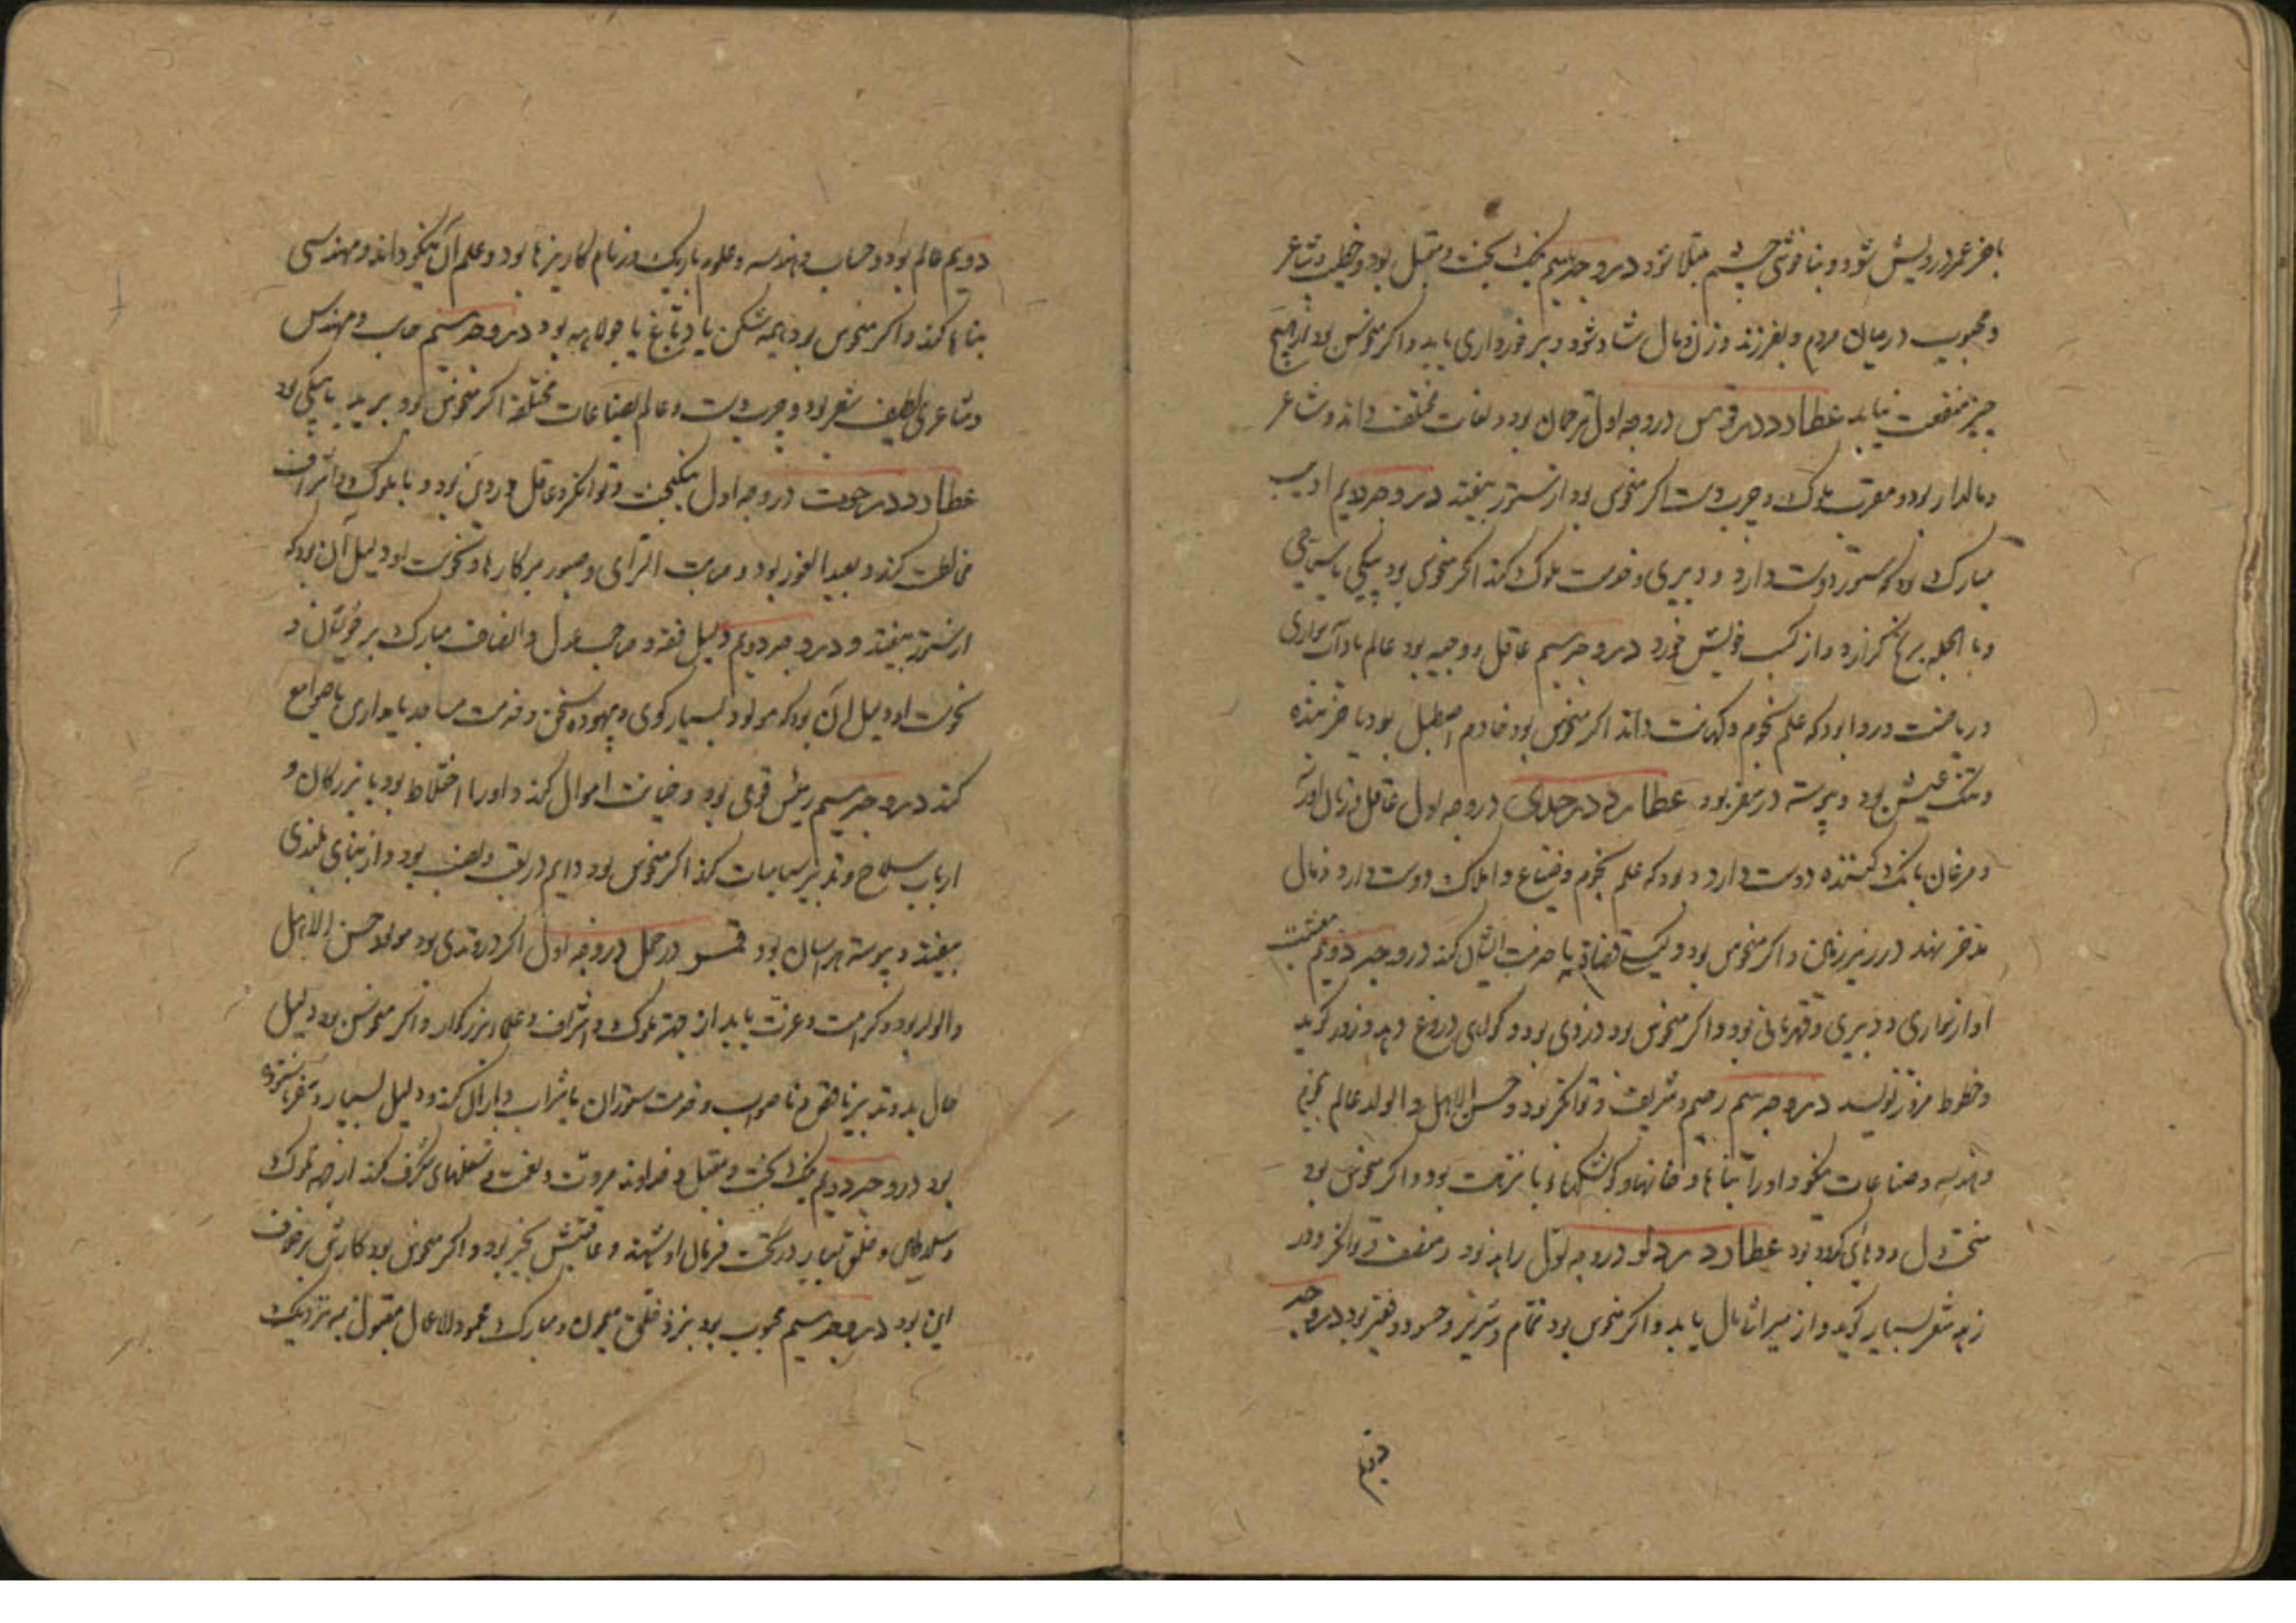 باخر عمر درویش شود و بناخوشی چشم مبتلا شود در وجه سیم نیک بخت و مقبل بود و خطیب و شاعر
و محبوب در میان مردم و بفرزند و زن و مال شاد شود و برخورداری یابد و اگر منحوس بود از هیچ
چیز منفعت نیابد عطارد در قوس در وجه اول ترجمان بود و لغات مختلف داند و شاعر
و مالدار بود و مقرب ملوک و چرب دست اگر منحوس بود از ستور بیفتد در وجه دویم ادیب
مبارک بود که ستور دوست دارد و دبیری و خدمت ملوک کند اگر منحوس بود پیکی یا سیاحی
و بالجمله برنج گذارد و از کسب خویش خورد در وجه سیم عاقل و وجیه بود عالم بادآب سواری
و ریاضت و روا بود که علم نجوم و کهانت داند اگر منحوس بود خادم اصطبل بود یا خربنده
و تنک عیش بود و پیوسته در سفر بود عطارد در جدی در وجه اول عاقل و زبان آور
و مرغان بانک کننده دوست دارد و بود که علم نجوم و ضیاع و املاک دوست دارد و مال
مدخر نهد در زیر زمین و اگر منحوس بود وکیل قضاة یا خدمت ایشان کند در وجه دویم معیشت
او از نجاری و دبیری و قهرمانی بود و اگر منحوس بود دزدی بود و گواهی دروغ دهد و زور گوید
و خطوط مزور نویسد در وجه سیم رحیم و شریف و توانگر بود و حسن الاهل و الولد عالم بنجوم
و هندسه و صناعات نیکو و او را بناها و خانها و کوشکهاء با نزهت بود و اگر منحوس بود
سخت دل بود عطارد در دلو در وجه اول زاهد بود و منفعت و توانگر و در
زهد شعر بسیار گوید و از میراث مال یابد و اگر منحوس بود نمام و شریر و حسود و فقیر بود در وجه
دویم
دویم عالم بود و حساب و هندسه و علوم باریک و زمام کاریزها بود و علم آن نیکو داند و مهندسی
بناها کند و اگر منحوس بود هیمه شکن یا دباغ یا جولاهه بود در وجه سیم حاسب و مهندس
و شاعری لطیف شعر بود و چرب دست و عالم بصناعات مختلفه اگر منحوس بود برید یا پیکی بود
عطارد در حوت در وجه اول نیکبخت و توانگر و عاقل و روین بود و با ملوک و اشراف
مخالطت کند و بعید الغور بود و صایب الرای و صبور بر کارها و نحوست او دلیل آن بود که
از ستور بیفتد و در وجه دویم دلیل فقه و صاحب عدل و انصاف مبارک بر خویشان و
نحوست او دلیل آن بود که مولود بسیار گوی و بیهوده سخن و خدمت مساجد یابد یا صوامع
کند در وجه سیم رئیس قومی بود و خیانت اموال کند و او را اختلاط بود با بزرگان و
ارباب سلاح و تدبیر سیاسات کند اگر منحوس بود دایم بود و از بنای بلندی
بیفتد و پیوسته هراسان بود قمر در حمل در وجه اول اگر بود مولود حسن الاهل
والولد بود و کرامت و عزت یابد از جهة ملوک و اشراف و علماء بزرگوار و اگر منحوس بود دلیل
حال بد و تدبیر ناقص و ناصواب و خدمت ستوران یا شراب کند و دلیل بسیار و سفر با ستوه
بود در وجه دویم نیک بخت و مقبل و خداوند مروت و نعمت و شغلهای شگرف کند از جهة ملوک
و سلاطین و خلق بسیار در تحت فرمان او باشند و عاقبتش بخیر بود و اگر منحوس بود کارش بر خوف
این بود در وجه سیم محبوب بود بنزد خلق میمون و مبارک محمود الاعمال مقبول بنزدیک